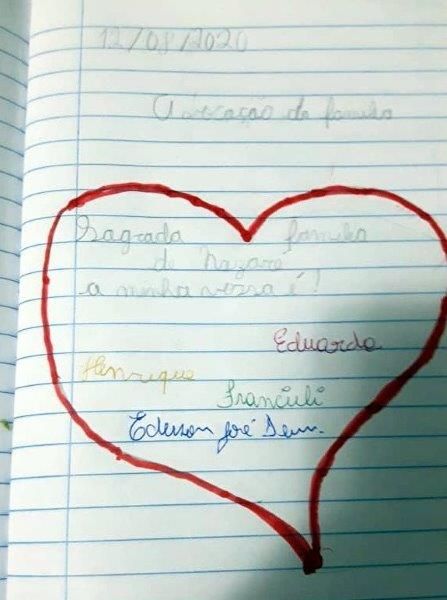 12/08/2020
A vocação da família
Sagrada família
de Nazaré
a minha nossa é!
Eduarda
Henrique
Franciéli
Ederson José